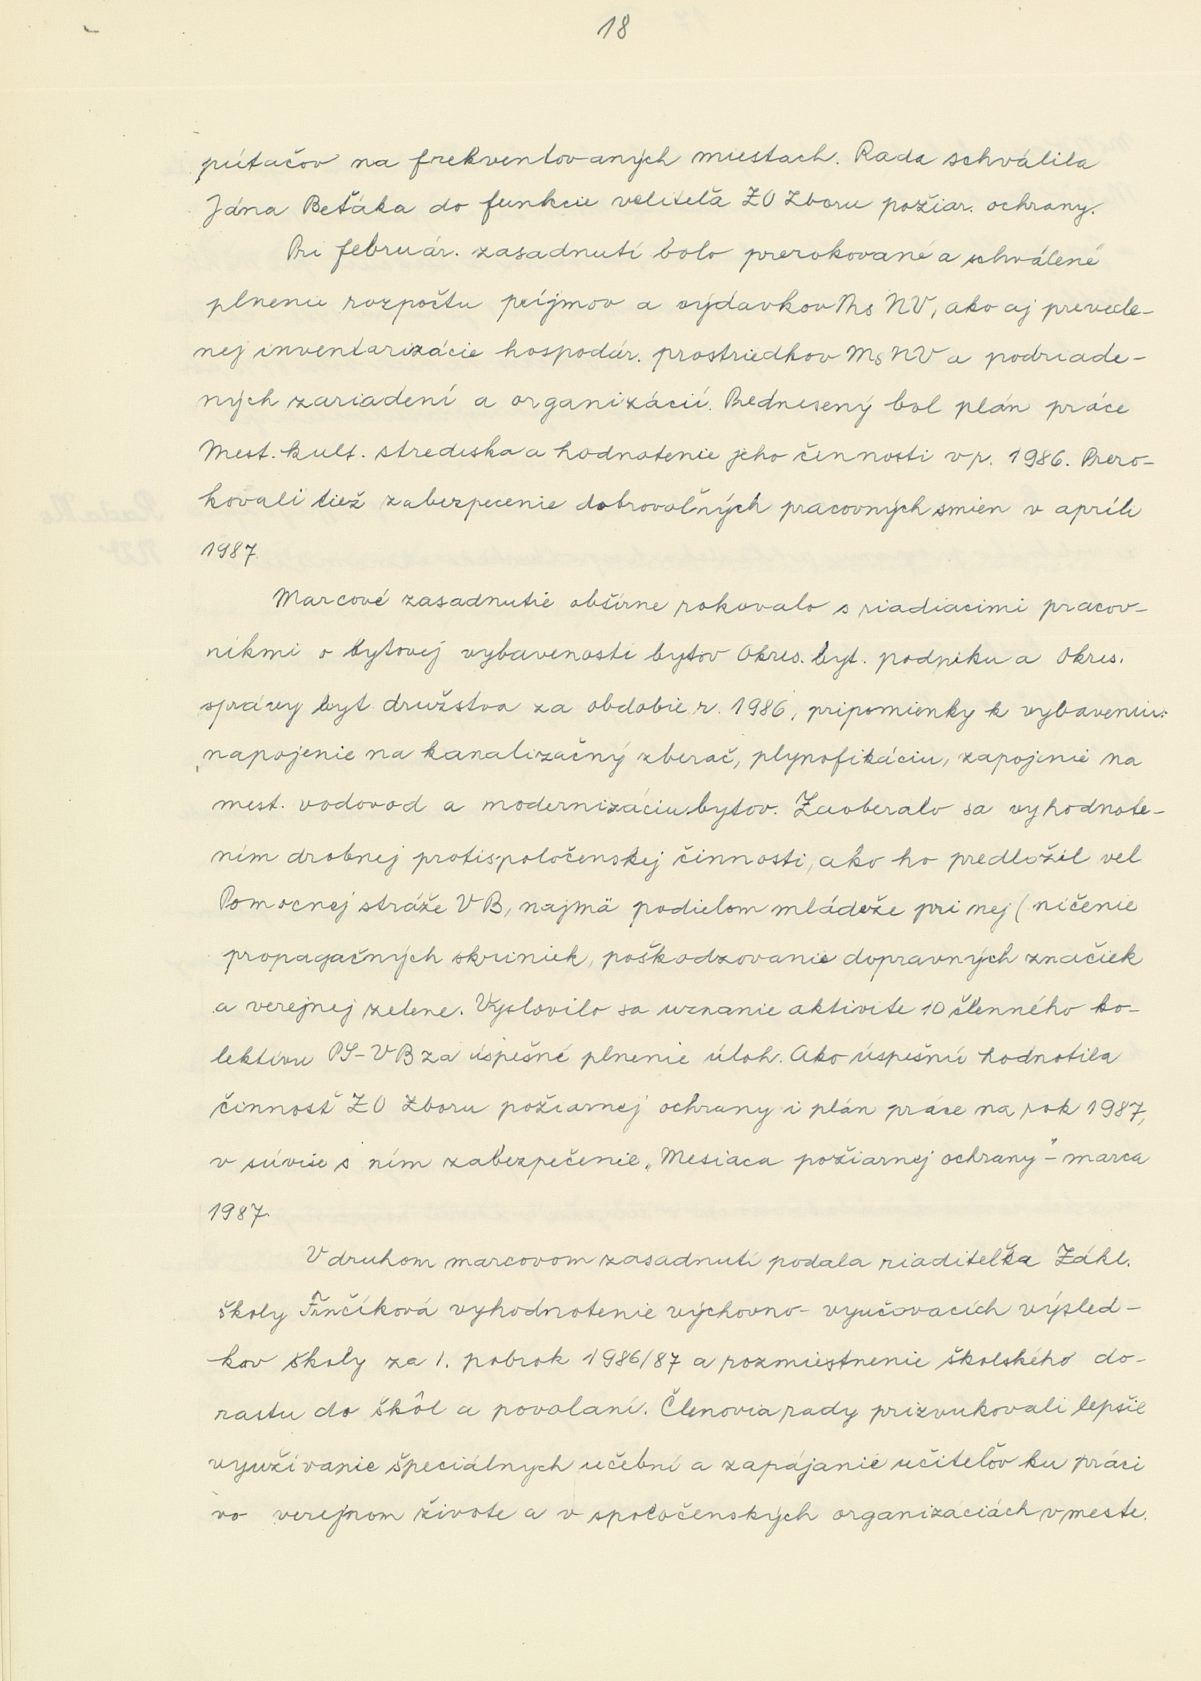 18
pútačov na frekventovaných miestach. Rada schválila
Jána Beťáka do funkcie veliteľa ZO Zboru požiar. ochrany.
Pri február. zasadnutí bolo prerokované a schválené
plnenie rozpočtu príjmov a výdavkov Ms NV, ako aj prevede-
nej inventarizácie hospodár. prostriedkov Ms NV a podriade-
ných zariadení a organizácií. Prednesený bol plán práce
Mest. kult. strediska a hodnotenie jeho činnosti v r. 1986. Prero-
kovali tiež zabezpecenie dobrovoľných pracovných smien v apríli
1987.
Marcové zasadnutie obšírne rokovalo s riadiacimi pracov-
níkmi o bytovej vybavenosti bytov Okres. byt. podniku a Okres.
správy byt. družstva za obdobie r. 1986, pripomienky k vybaveniu:
napojenie na kanalizačný zberač, plynofikáciu, zapojenie na
mest. vodovod a modernizáciu bytov. Zaoberalo sa vyhodnote-
ním drobnej protispoločenskej činnosti, ako ho predložil vel
Pomocnej stráže VB, najmä podielom mládeže pri nej (ničenie
propagačných skriniek, poškodzovanie dopravných značiek
a verejnej zelene. Vyslovilo sa uznanie aktivite 10 členného ko-
lektívu PS-VB za úspešné plnenie úloh. Ako úspešnú hodnotila
činnosť ZO Zboru požiarnej ochrany i plán práce na rok 1987,
v súvise s ním zabezpečenie „Mesiaca požiarnej ochrany" - marca
1987.
V druhom marcovom zasadnutí podala riaditeľka Zákl.
školy Finčíková vyhodnotenie výchovno-vyučovacích výsled-
kov školy za 1. polrok 1986/87 a rozmiestnenie školského do-
rastu do škôl a povolaní. Členovia rady prizvukovali lepšie
využívanie špeciálnych učební a zapájanie učiteľov ku práci
vo verejnom živote a v spoločenských organizáciách v meste.